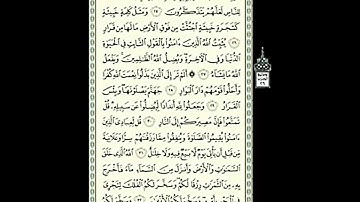 لِلنَّاسِ لَعَلَّهُمْ يَتَذَكَّرُونَ ٢٥ وَمَثَلُ كَلِمَةٍ خَبِيثَةٍ
كَشَجَرَةٍ خَبِيثَةٍ اجْتُثَّتْ مِن فَوْقِ الْأَرْضِ مَا لَهَا مِن قَرَارٍ
٢٦ يُثَبِّتُ اللَّهُ الَّذِينَ ءَامَنُوا بِالْقَوْلِ الثَّابِتِ فِي الْحَيَوٰةِ
الدُّنْيَا وَفِي الْآخِرَةِ وَيُضِلُّ اللَّهُ الظَّٰلِمِينَ وَيَفْعَلُ
اللَّهُ مَا يَشَآءُ ٢٧ ۞ أَلَمْ تَرَ إِلَى الَّذِينَ بَدَّلُوا نِعْمَتَ اللَّهِ كُفْرًا
وَأَحَلُّوا قَوْمَهُمْ دَارَ الْبَوَارِ ٢٨ جَهَنَّمَ يَصْلَوْنَهَا وَبِئْسَ
الْقَرَارُ ٢٩ وَجَعَلُوا لِلَّهِ أَندَادًا لِّيُضِلُّوا عَن سَبِيلِهِ قُلْ
تَمَتَّعُوا فَإِنَّ مَصِيرَكُمْ إِلَى النَّارِ ٣٠ قُل لِّعِبَادِيَ الَّذِينَ
ءَامَنُوا يُقِيمُوا الصَّلَوٰةَ وَيُنفِقُوا مِمَّا رَزَقْنَٰهُمْ سِرًّا وَعَلَانِيَةً
مِّن قَبْلِ أَن يَأْتِيَ يَوْمٌ لَّا بَيْعٌ فِيهِ وَلَا خِلَٰلٌ ٣١ اللَّهُ الَّذِي خَلَقَ
السَّمَٰوَٰتِ وَالْأَرْضَ وَأَنزَلَ مِنَ السَّمَآءِ مَآءً فَأَخْرَجَ بِهِ
مِنَ الثَّمَرَٰتِ رِزْقًا لَّكُمْ وَسَخَّرَ لَكُمُ الْفُلْكَ لِتَجْرِيَ
فِي الْبَحْرِ بِأَمْرِهِ وَسَخَّرَ لَكُمُ الْأَنْهَٰرَ ٣٢ وَسَخَّرَ لَكُمُ